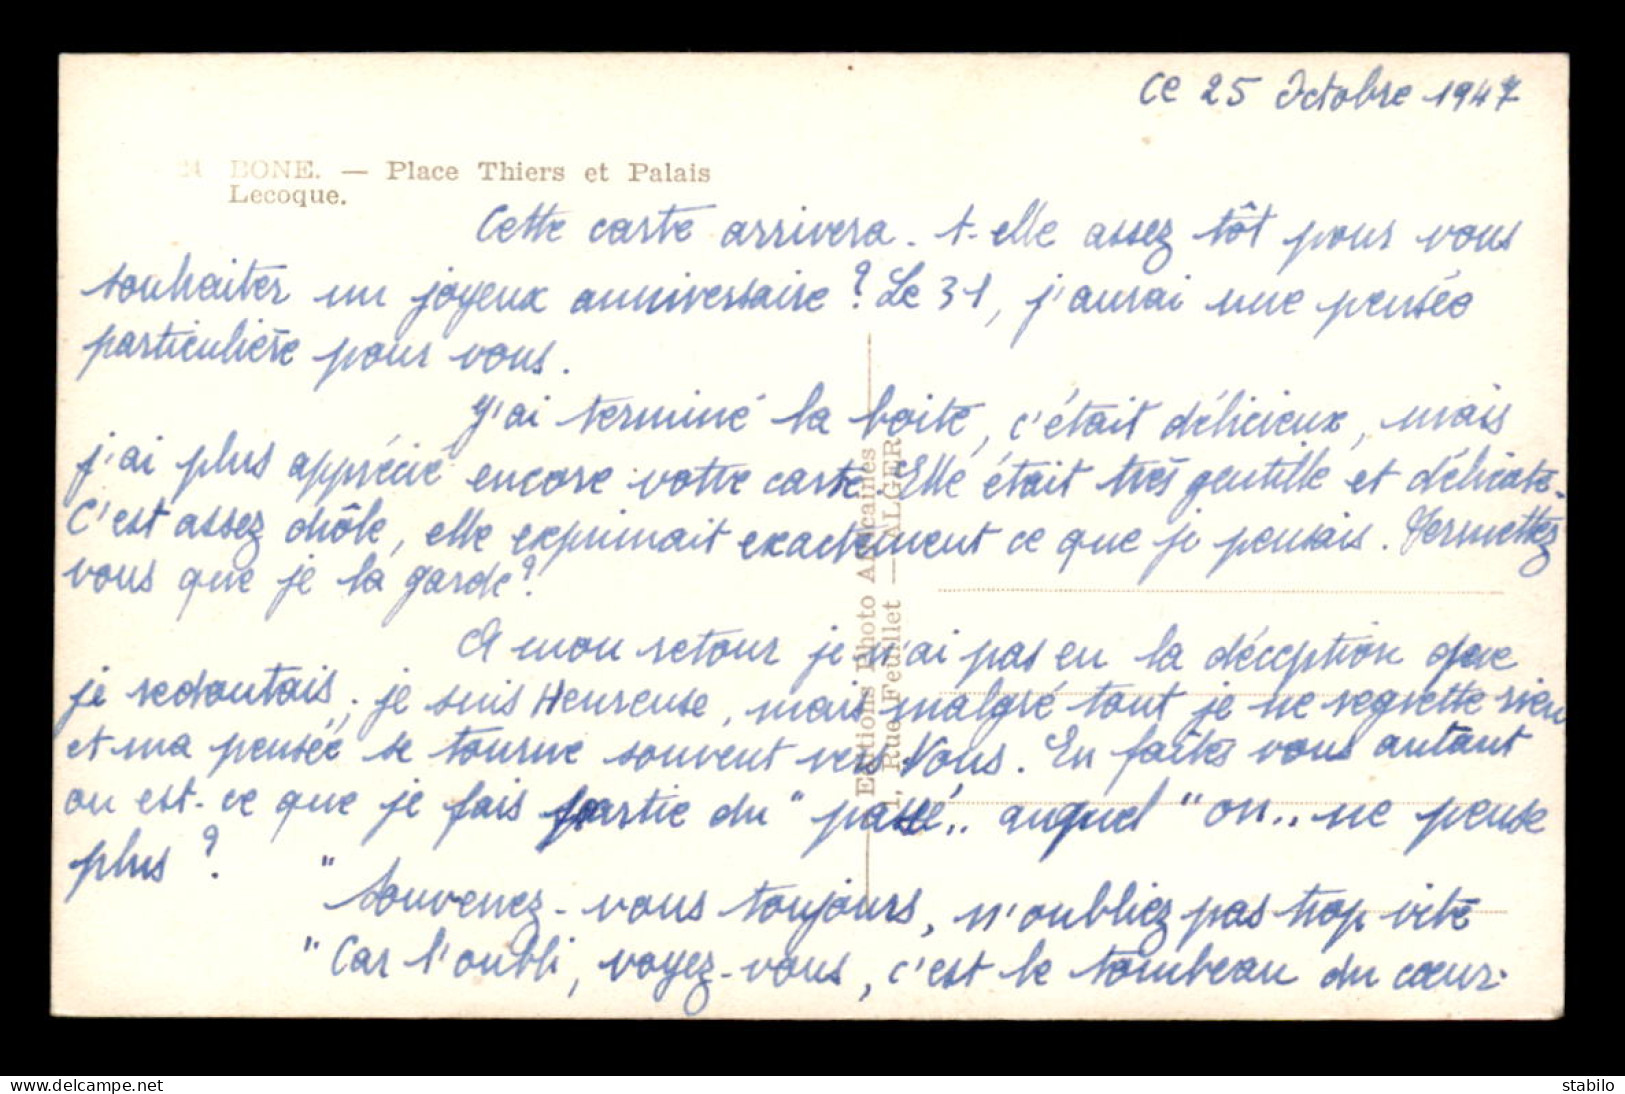 ce 25 Octobre 1947
24 BONE. — Place Thiers et Palais
Lecoque.
Cette carte arrivera-t-elle assez tôt pour vous
souhaiter un joyeux anniversaire ? Le 31, j'aurai une pensée
particulière pour vous.
J'ai terminé la boite, c'était délicieux, mais
j'ai plus apprécié encore votre carte. Elle était très gentille et délicate.
C'est assez drôle, elle exprimait exactement ce que je pensais. Permettez
vous que je la garde ?
A mon retour je n'ai pas eu la déception que
je redoutais ; je suis Heureuse, mais malgré tout je ne regrette rien
et ma pensée se tourne souvent vers Vous. En faites vous autant
ou est-ce que je fais partie du "passé" auquel "on" ne pense
plus ?
"Souvenez-vous toujours, n'oubliez pas trop vite
"Car l'oubli, voyez-vous, c'est le tombeau du cœur.
Editions Photo Africaines
1, Rue Feuillet — ALGER
www.delcampe.net
stabilo